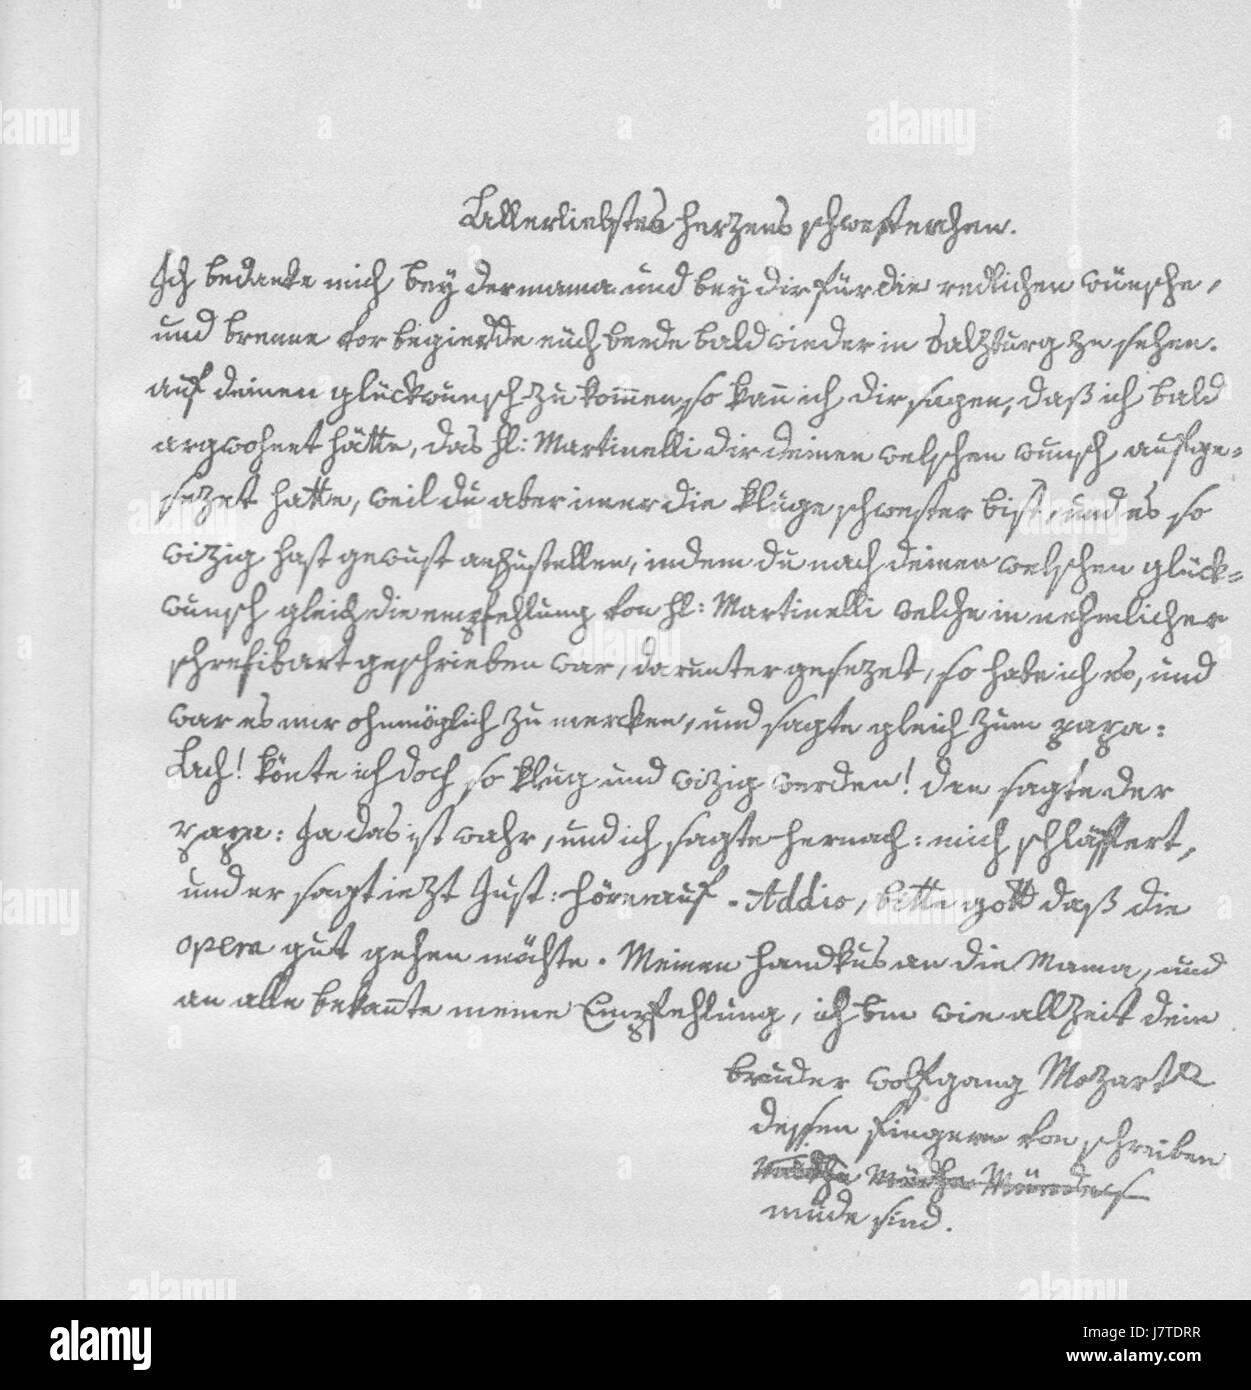 Allerliebstes herzens schwesterchen.
Ich bedancke mich bey der mama und bey dir für die redlichen wünsche,
und brenne vor begierdde eüch beede bald wieder in Salzburg zu sehen.
auf deinen glückwunsch zu kommen, so kan̄ ich dir sagen, daß ich bald
argwohnet hätte, das hl: Martinelli dir deinen welschen wunsch aufge-
sezet hatte, weil du aber imer die kluge schwester bist, und es so
wizig hast gewust anzustellen, indem du nach deinen welschen glück-
wunsch gleich die empfehlung von hl: Martinelli welche in nehmlicher
schreibart geschrieben war, darunter gesezet, so habe ich es, und
war es mir ohnmöglich zu mercken, und sagte gleich zum papa:
Ach! könte ich doch so klug und wizig werden! dan sagte der
papa: Ja das ist wahr, und ich sagte hernach: mich schläffert,
und er sagt iezt Just: höre auf. Addio, bitte gott daß die
opera gut gehen möchte. Meinen handkus an die Mama, und
an alle bekan̄te meine Empfehlung, ich bin wie allzeit dein
bruder wolfgang Mozart
dessen finger von schreiben
müde sind.
alamy
alamy
Image ID: J7TDRR
www.alamy.com